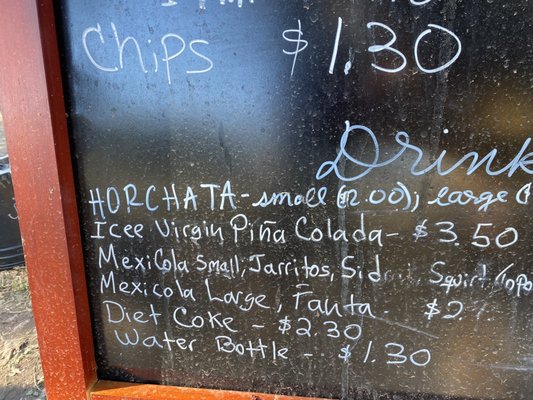 Chips $1.30
Drink
HORCHATA - small ($2.00); large (
Icee Virgin Piña Colada - $3.50
Mexicola small, Jarritos, Squirt,
Mexicola Large, Fanta - $2
Diet Coke - $2.30
Water Bottle - $1.30